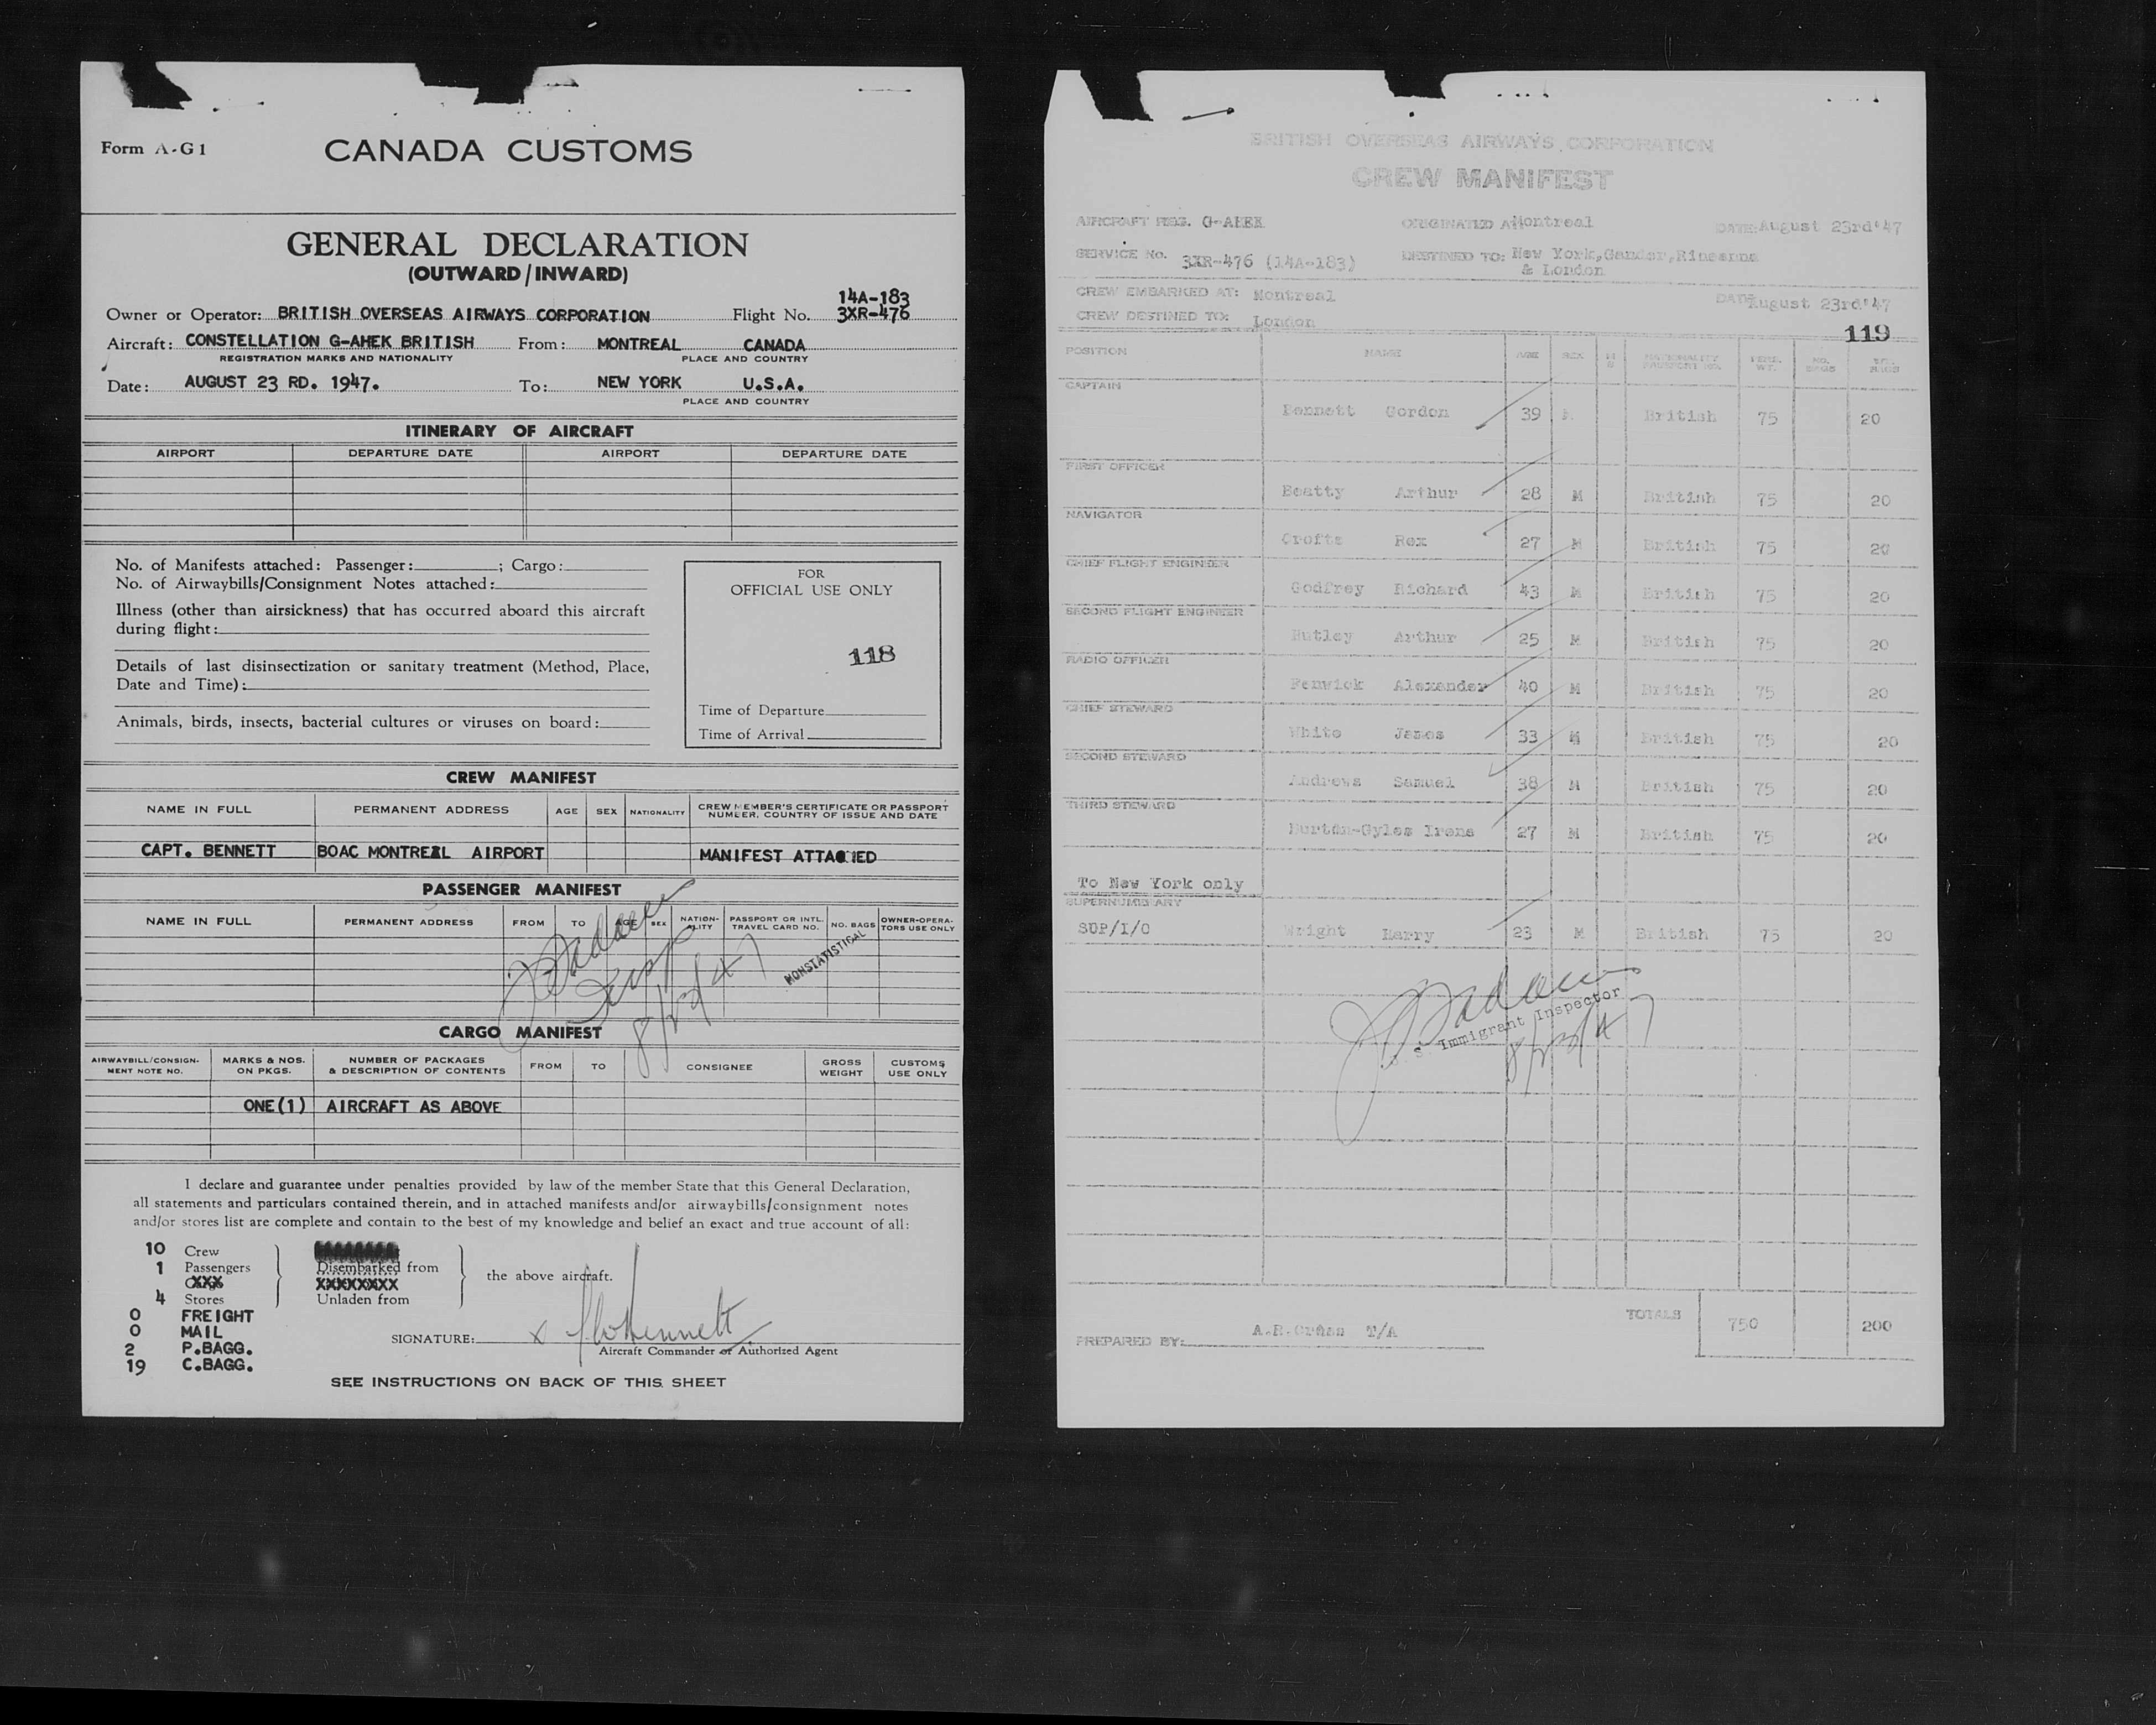 Form A-G1
CANADA CUSTOMS
GENERAL DECLARATION
(OUTWARD/INWARD)
14A-183
Owner or Operator: BRITISH OVERSEAS AIRWAYS CORPORATION Flight No. 3XR-476
Aircraft: CONSTELLATION G-AHEK BRITISH From: MONTREAL CANADA
REGISTRATION MARKS AND NATIONALITY PLACE AND COUNTRY
Date: AUGUST 23 RD. 1947. To: NEW YORK U.S.A.
PLACE AND COUNTRY
ITINERARY OF AIRCRAFT
AIRPORT DEPARTURE DATE AIRPORT DEPARTURE DATE
No. of Manifests attached: Passenger: ; Cargo:
No. of Airwaybills/Consignment Notes attached:
Illness (other than airsickness) that has occurred aboard this aircraft
during flight:
Details of last disinsectization or sanitary treatment (Method, Place,
Date and Time):
Animals, birds, insects, bacterial cultures or viruses on board:
FOR
OFFICIAL USE ONLY
118
Time of Departure
Time of Arrival
CREW MANIFEST
NAME IN FULL PERMANENT ADDRESS AGE SEX NATIONALITY CREW MEMBER'S CERTIFICATE OR PASSPORT
NUMBER, COUNTRY OF ISSUE AND DATE
CAPT. BENNETT BOAC MONTREAL AIRPORT MANIFEST ATTACHED
PASSENGER MANIFEST
NAME IN FULL PERMANENT ADDRESS FROM TO AGE SEX NATION-ALITY PASSPORT OR INTL. TRAVEL CARD NO. NO. BAGS OWNER-OPERA-TORS USE ONLY
NONSTATISTICAL
8/23/47
CARGO MANIFEST
AIRWAYBILL/CONSIGN-MENT NOTE NO. MARKS & NOS. ON PKGS. NUMBER OF PACKAGES & DESCRIPTION OF CONTENTS FROM TO CONSIGNEE GROSS WEIGHT CUSTOMS USE ONLY
ONE(1) AIRCRAFT AS ABOVE
I declare and guarantee under penalties provided by law of the member State that this General Declaration,
all statements and particulars contained therein, and in attached manifests and/or airwaybills/consignment notes
and/or stores list are complete and contain to the best of my knowledge and belief an exact and true account of all:
10 Crew
1 Passengers Disembarked from
XXX XXXXXXXX the above aircraft.
4 Stores Unladen from
0 FREIGHT
0 MAIL
2 P.BAGG.
19 C.BAGG.
SIGNATURE: x
Aircraft Commander or Authorized Agent
SEE INSTRUCTIONS ON BACK OF THIS SHEET
BRITISH OVERSEAS AIRWAYS CORPORATION
CREW MANIFEST
AIRCRAFT REG. G-AHEK ORIGINATED AT Montreal DATE: August 23rd'47
SERVICE No. 3XR-476 (14A-183) DESTINED TO: New York, Gander, Rineanna
& London
CREW EMBARKED AT: Montreal DATE August 23rd'47
CREW DESTINED TO: London
119
POSITION NAME AGE SEX NATIONALITY PASSPORT NO. PERS. WT. NO. BAGS WT. BAGS
CAPTAIN
Bennett Gordon 39 M British 75 20
FIRST OFFICER
Beatty Arthur 28 M British 75 20
NAVIGATOR
Crofts Rex 27 M British 75 20
CHIEF FLIGHT ENGINEER
Godfrey Richard 43 M British 75 20
SECOND FLIGHT ENGINEER
Hutley Arthur 25 M British 75 20
RADIO OFFICER
Fenwick Alexander 40 M British 75 20
CHIEF STEWARD
White James 33 M British 75 20
SECOND STEWARD
Andrews Samuel 38 M British 75 20
THIRD STEWARD
Burton-Gyles Irene 27 M British 75 20
To New York only
SUPERNUMERARY
SUP/I/O Wright Harry 23 M British 75 20
U S Immigrant Inspector
8/23/47
TOTALS 750 200
PREPARED BY: T/A